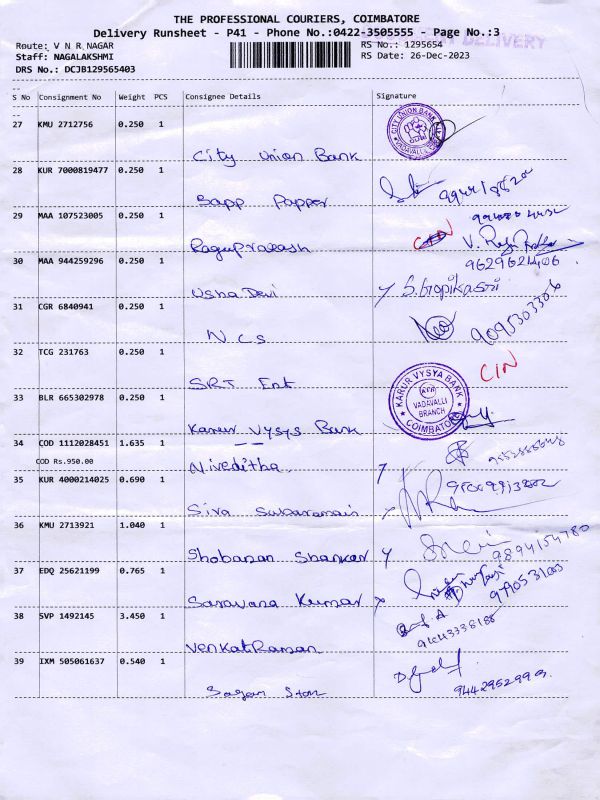 THE PROFESSIONAL COURIERS, COIMBATORE
Delivery Runsheet - P41 - Phone No.:0422-3505555 - Page No.:3
DELIVERY
Route: V N R NAGAR
RS No.: 1295654
Staff: NAGALAKSHMI
RS Date: 26-Dec-2023
DRS No.: DCJB129565403
S No Consignment No Weight PCS Consignee Details Signature
27 KMU 2712756 0.250 1
CITY UNION BANK
VADAVALLI
City Union Bank
28 KUR 7000819477 0.250 1
Sapp Papper
29 MAA 107523005 0.250 1
RaguPrakash
30 MAA 944259296 0.250 1
9629621406
Usha Devi S. Gopikasri
31 CGR 6840941 0.250 1
9095303306
N C S
32 TCG 231763 0.250 1
C/N
SRT Ent
33 BLR 665302978 0.250 1
KARUR VYSYA BANK
KVB
VADAVALLI
BRANCH
COIMBATORE
Karur Vysys Bank
34 COD 1112028451 1.635 1
COD Rs.950.00
Niveditha
35 KUR 4000214025 0.690 1
Siva
36 KMU 2713921 1.040 1
9894154780
Shobanan Shanker
37 EDQ 25621199 0.765 1
9790531103
Saravana Kumar
38 SVP 1492145 3.450 1
VenkatRaman
39 IXM 505061637 0.540 1
9442952999
Sagar